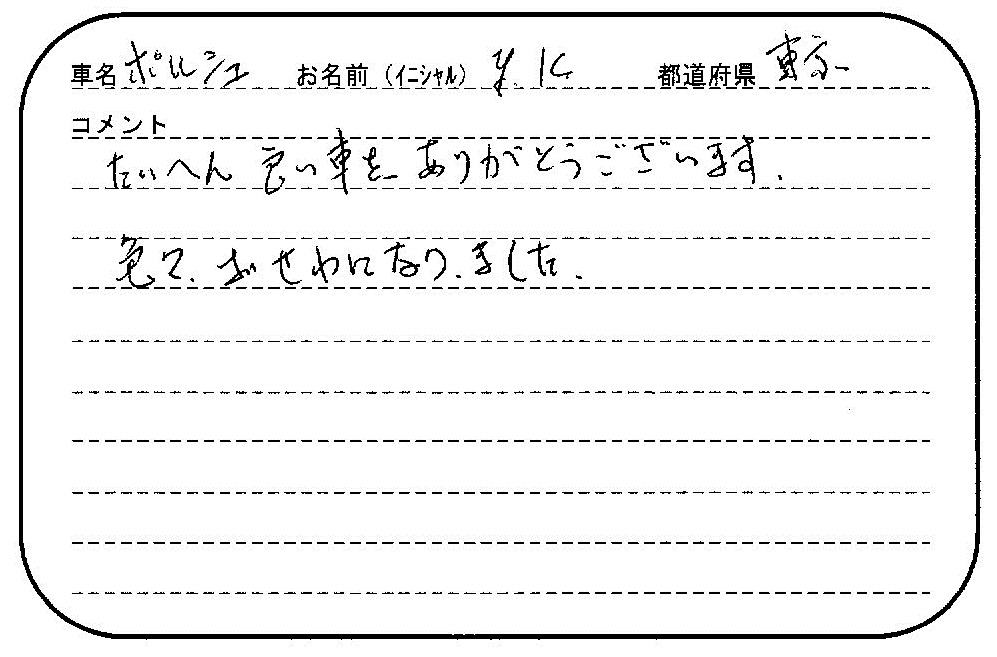 車名 ポルシェ お名前（ｲﾆｼｬﾙ） K 都道府県 東京
コメント
たいへん 良い車を ありがとうございます.
色々. おせわになり.ました.